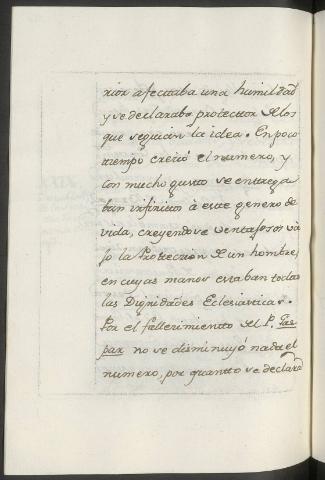 rior afectaba una humildad
y se declaraba protector de los
que seguian la idea. En poco
tiempo creció el numero, y
con mucho gusto se entrega
ban infinitos à este genero de
vida, creyendose ventajosos ba
jo la Proteccion de un hombre,
en cuyas manos estaban todas
las Dignidades Eclesiasticas.
Por el fallecimiento del P. Gas
par no se disminuyó nada el
numero, por quantto se declaró